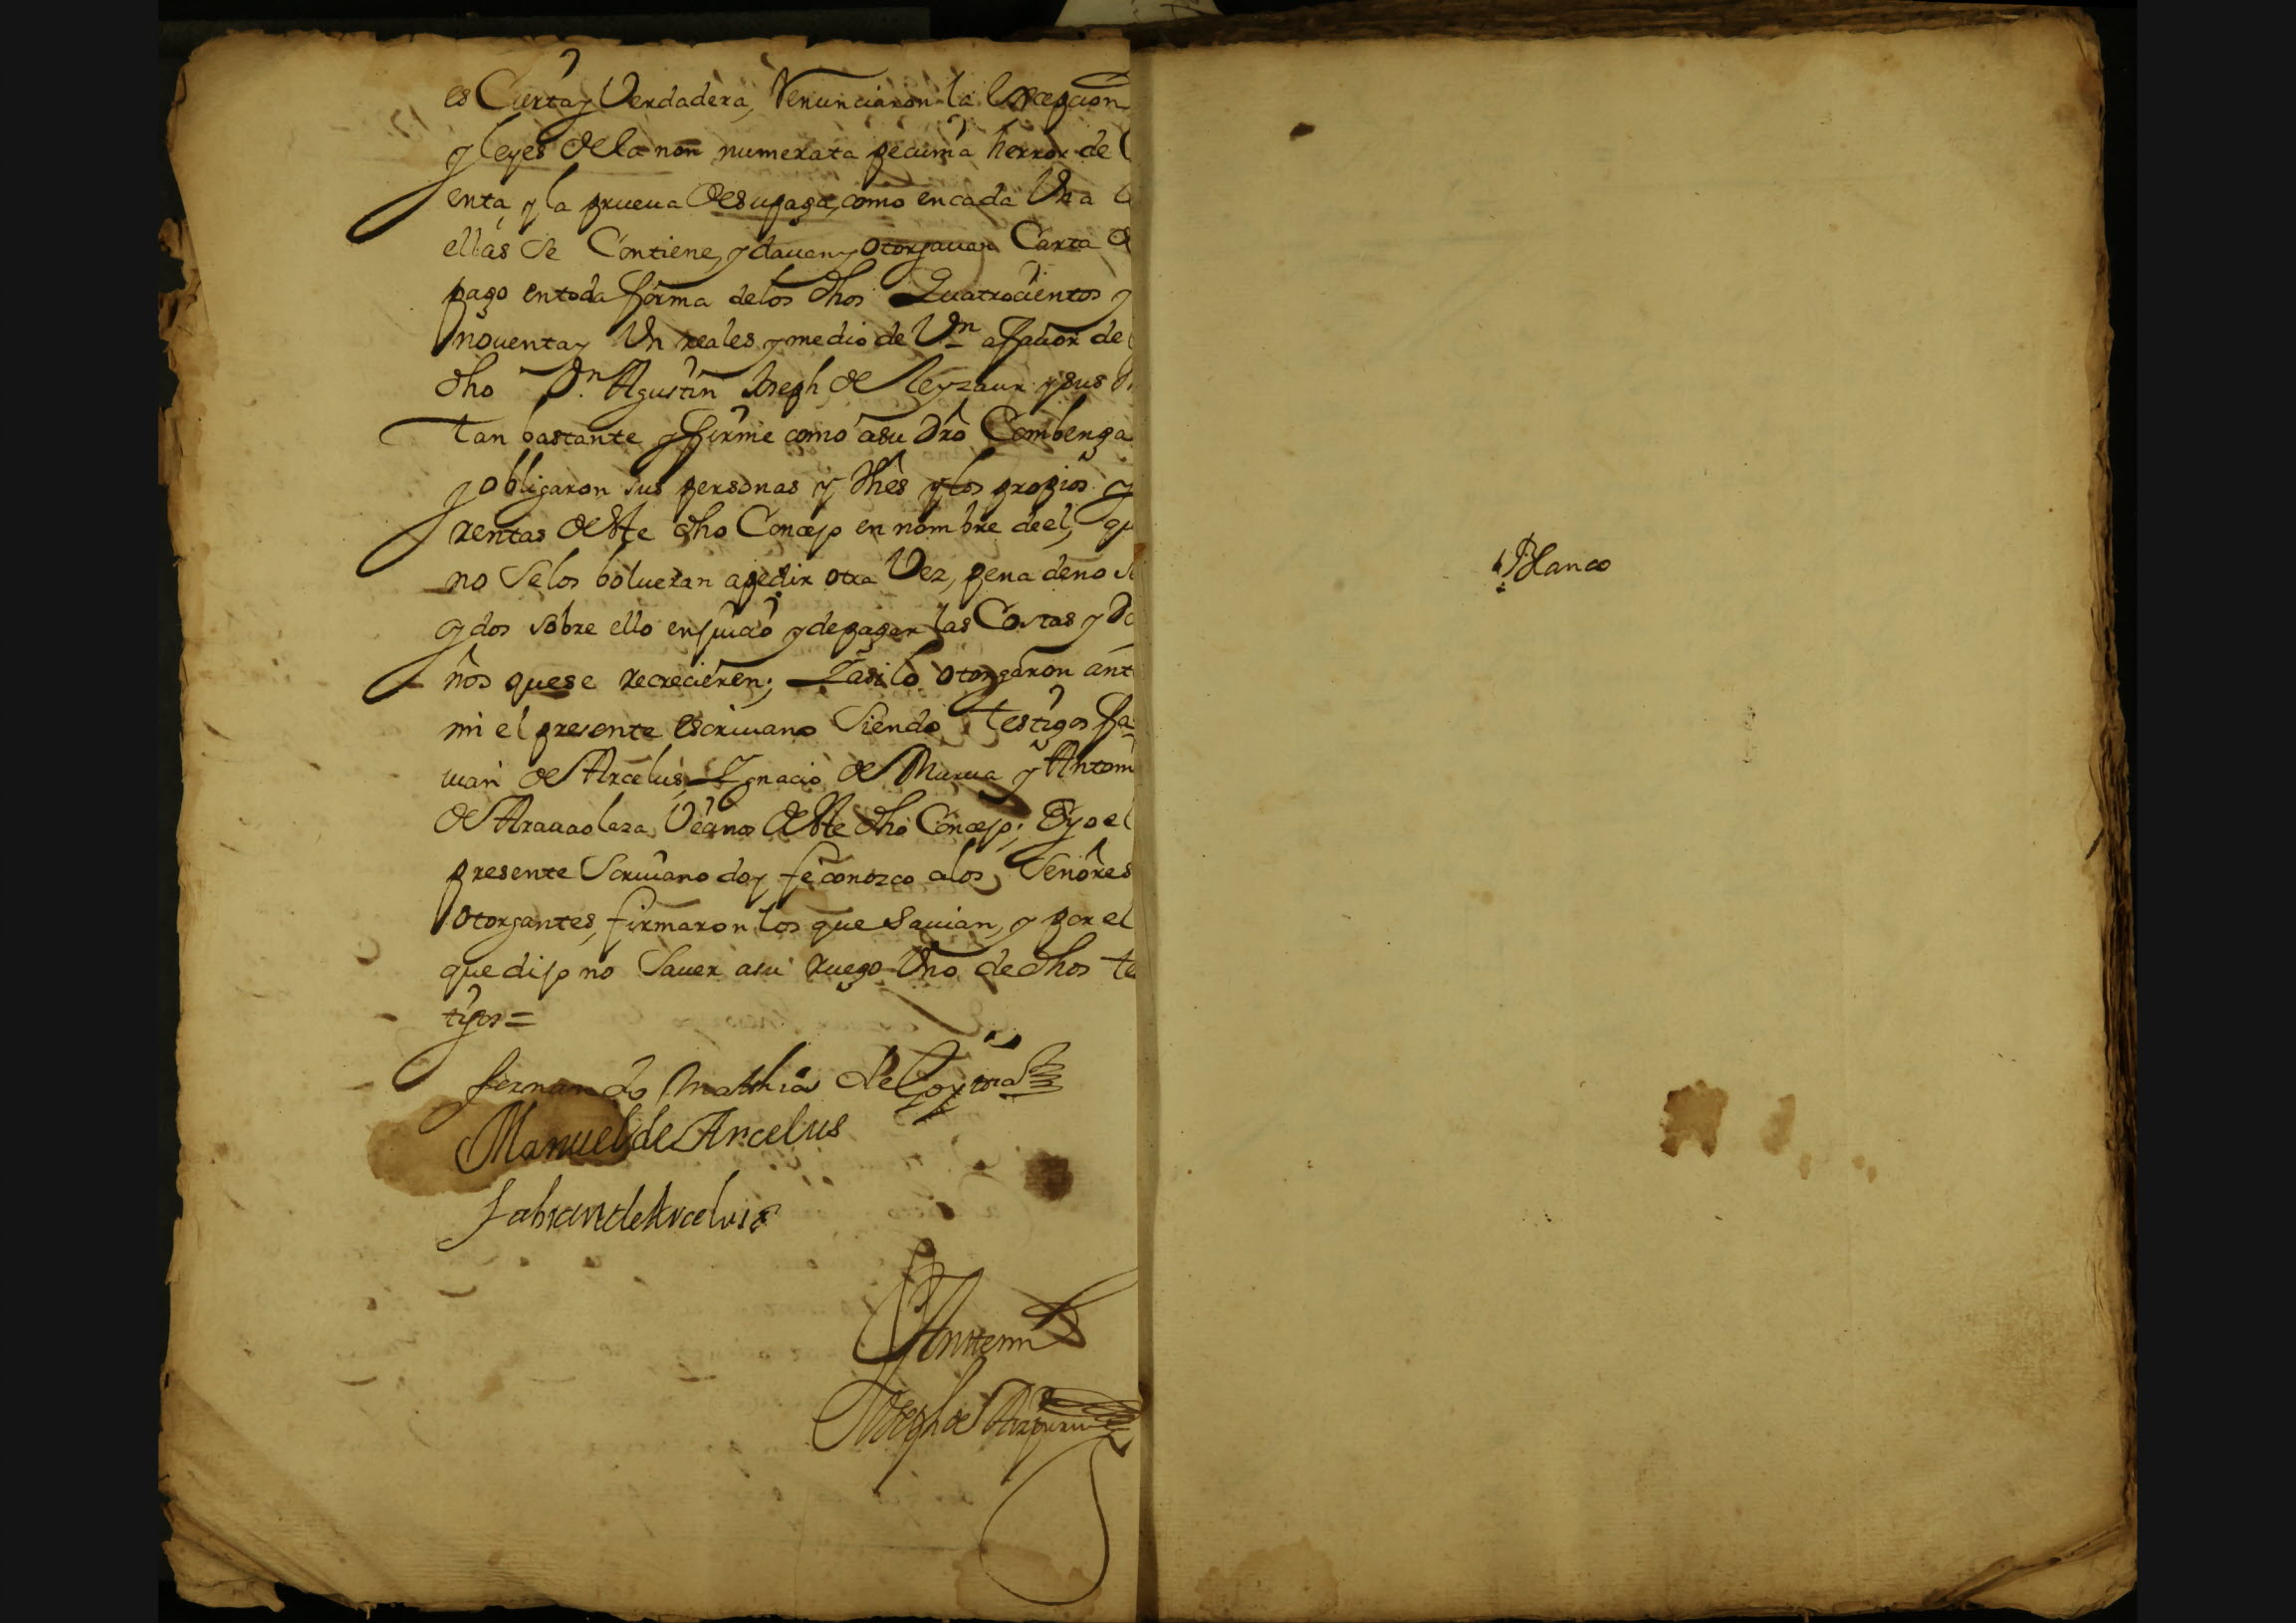 es Cierta y Verdadera, Renunciaron la excepcion
y leyes de la non numerata pecunia herror de
enta, y la prueua de su paga, como en cada Vna
ellas se Contiene, y dauan y otorgauan Carta de
pago en toda forma de los dhos Quatrocientos y
nouenta y Vn reales y medio de Vn a fauor de
dho Dn. Agustin Joseph de Leyzaur y sus
tan bastante y firme como a su dro Combenga
y obligaron sus personas y vnes y los propios y
rentas de este dho Concejo en nombre de el, qu
no se los bolueran a pedir otra Vez, pena de no
oydos sobre ello en juicio y de pagar las Costas y Da
ños que se recrecieren; Y asi lo otorgaron ant
mi el presente escriuano Siendo testigos Fa
uian de Arcelus, Ygnacio de Murua y Antoni
de Arauaolaza Vecinos de este dho Concejo; E yo el
presente Scriuano doy fe conozco a los Señores
otorgantes, firmaron los que sauian, y por el
que dijo no Sauer a su ruego Vno de dhos te
tigos =
fernando Mathias de Goytia
Manuel de Arcelus
fabian de Arcelus
Antemi
Joseph de
Blanco